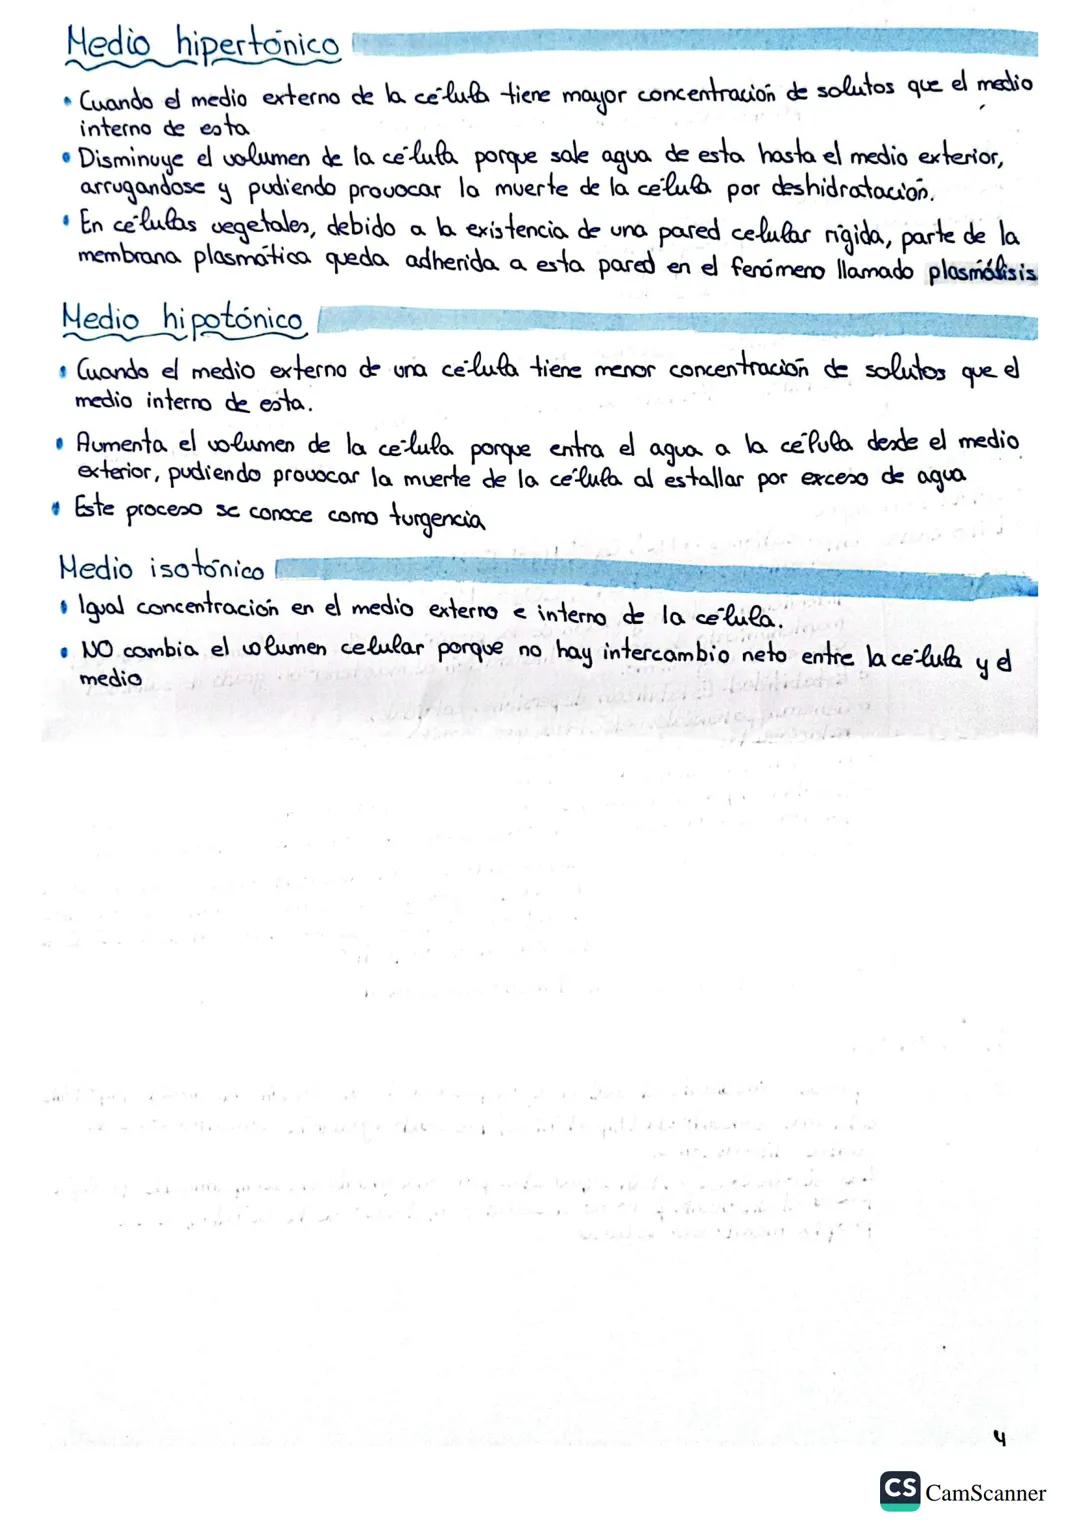 Medio hipertónico
• Cuando el medio externo de la célula tiene mayor concentración de solutos que el medio
interno de esta
• Disminuye el volumen de la célula porque sale agua de esta hasta el medio exterior,
arrugandose y pudiendo provocar la muerte de la célula por deshidratación.
• En células vegetales, debido a la existencia de una pared celular rígida, parte de la
membrana plasmática queda adherida a esta pared en el fenómeno llamado plasmólisis
Medio hipotónico
• Cuando el medio externo de una célula tiene menor concentración de solutos que el
medio interno de esta.
• Aumenta el volumen de la célula porque entra el agua a la célula desde el medio
exterior, pudiendo provocar la muerte de la célula al estallar por exceso de agua
• Este proceso se conoce como turgencia
Medio isotónico
• Igual concentración en el medio externo e interno de la célula.
• NO cambia el volumen celular porque no hay intercambio neto entre la célula y el
medio
4
CS CamScanner